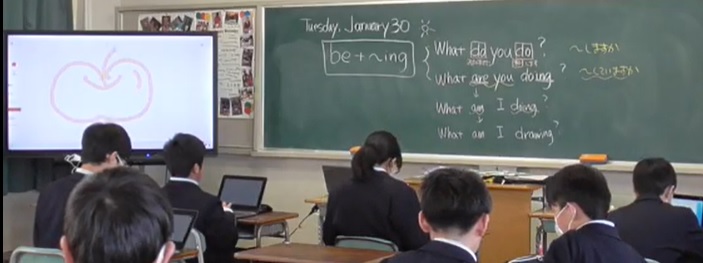 Tuesday, January 30
be + ~ing
What do you do?
~しますか
What are you doing?
~していますか
What am I doing?
What am I drawing?